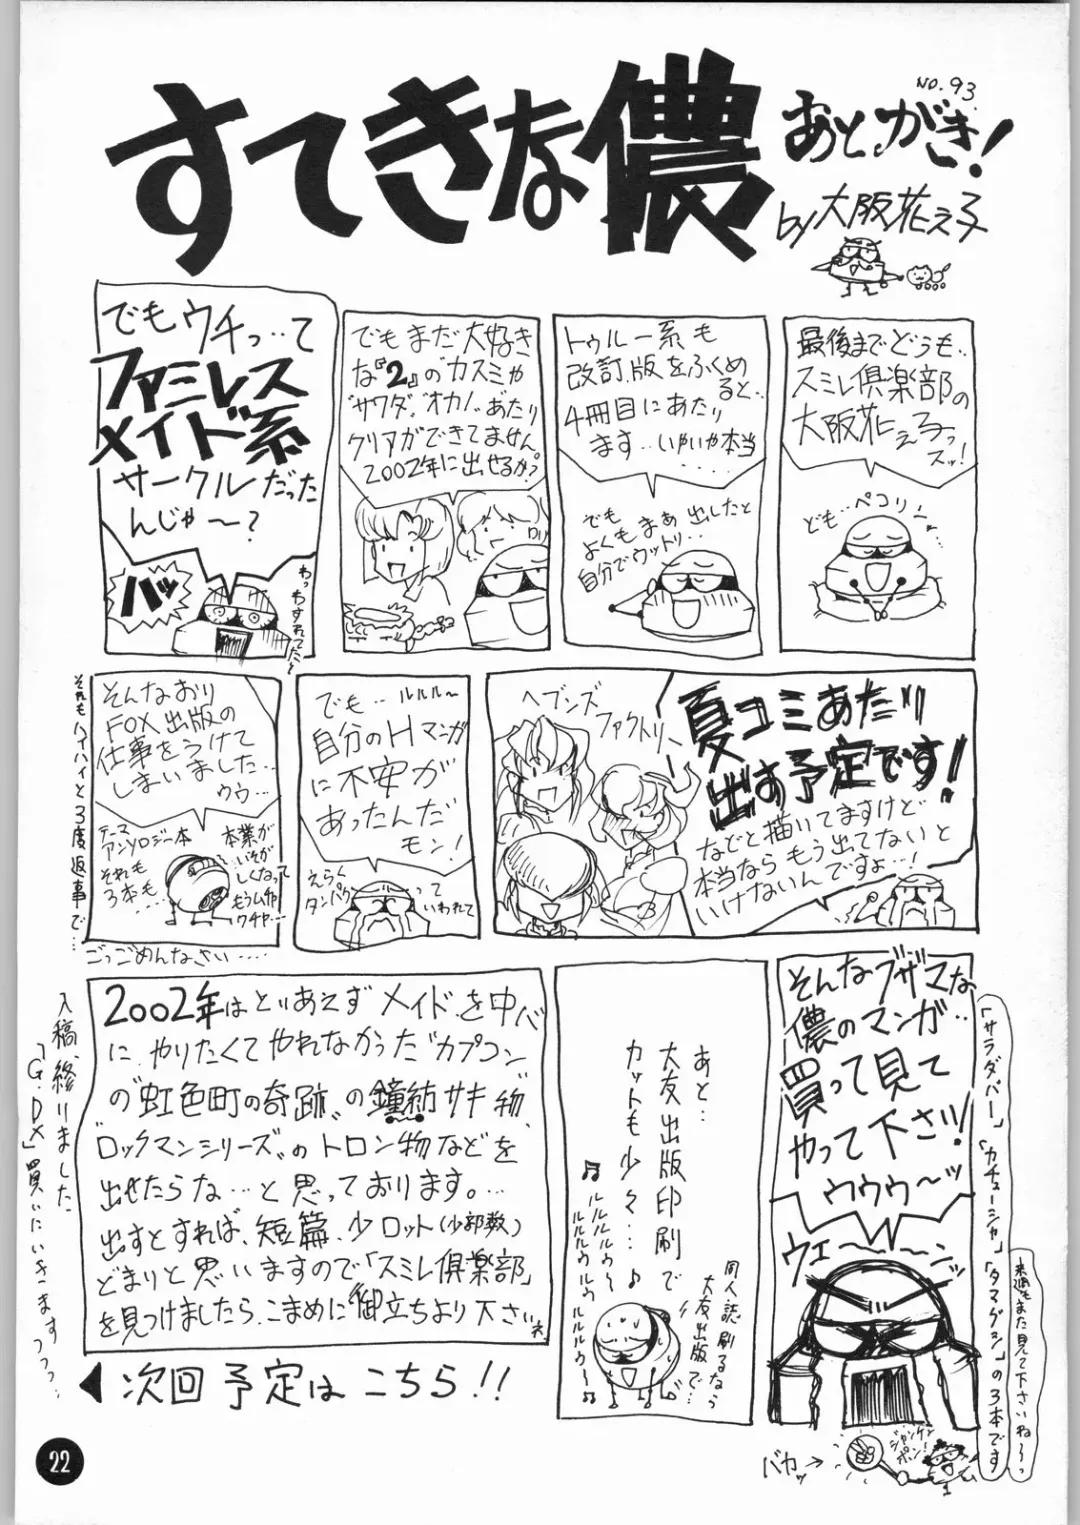 すてきな儂
NO.93
あとがき!
by 大阪花え子
最後までどうも..
スミレ倶楽部の
大阪花え子っ
スッ!
ども..ペコリン
トゥルー系も
改訂.版をふくめ
ると..
4冊目にあたり
ます..いやいや本当
でも
よくもまぁ出したと
自分でウットリ...
でもまだ大好き
な『2』のカスミや
"サワダ"、"オカノ"、あたり
クリアができてません
2002年に出せるか?
でもウチっ..て
ファミレス
メイド系
サークルだった
んじゃ〜?
バッ
わっわすれてたと
夏コミあたり
出す予定です!
などと描いてますけど
本当ならもう出てないと
いけないんですよ..!
ヘブンズ
ファクトリー
でも..ルルルー
自分のHマンガ
に不安が
あったんだ
モン!
えらく
タンパク
って
いわれて
そんなおり
FOX出版の
仕事をうけて
しまいました..
ウウ...
テーマ
アンソロジー本
それも
3本も....
本業が
いそが
しくなって
もうムチャ
ワチャ...
それもハイハイと3度返事で...
ごっごめんなさい....
そんなブザマな
儂のマンガ..
買って見て
やって下さい!
ウウゥ〜ッ
ウェ〜〜ンッ
「サラダバー」「カチューシャ」「タマグシ」の3本です
来週もまた見て下さいね〜っ
ジャンケン
ポン!
バカッ→
あと...
大友出版印刷で
カットも少々...♪
♫ルルルルゥ〜
ルルルゥルゥルルルゥ〜♫
同人誌刷るなら
大友出版で...
2002年はとりあえずメイドを中心
に、やりたくてやれなかった"カプコン"
の"虹色町の奇跡"の鐘紡サキ物
"ロックマンシリーズ"のトロン物などを
出せたらな...と思っております。...
出すとすれば、短篇、少ロット(少部数)
どまりと思いますので「スミレ倶楽部」
を見つけましたら、こまめに御立ちより下さいね
入稿、終りました
「G.DX」買いにいきますっっっ..
◀次回予定はこちら!!
22